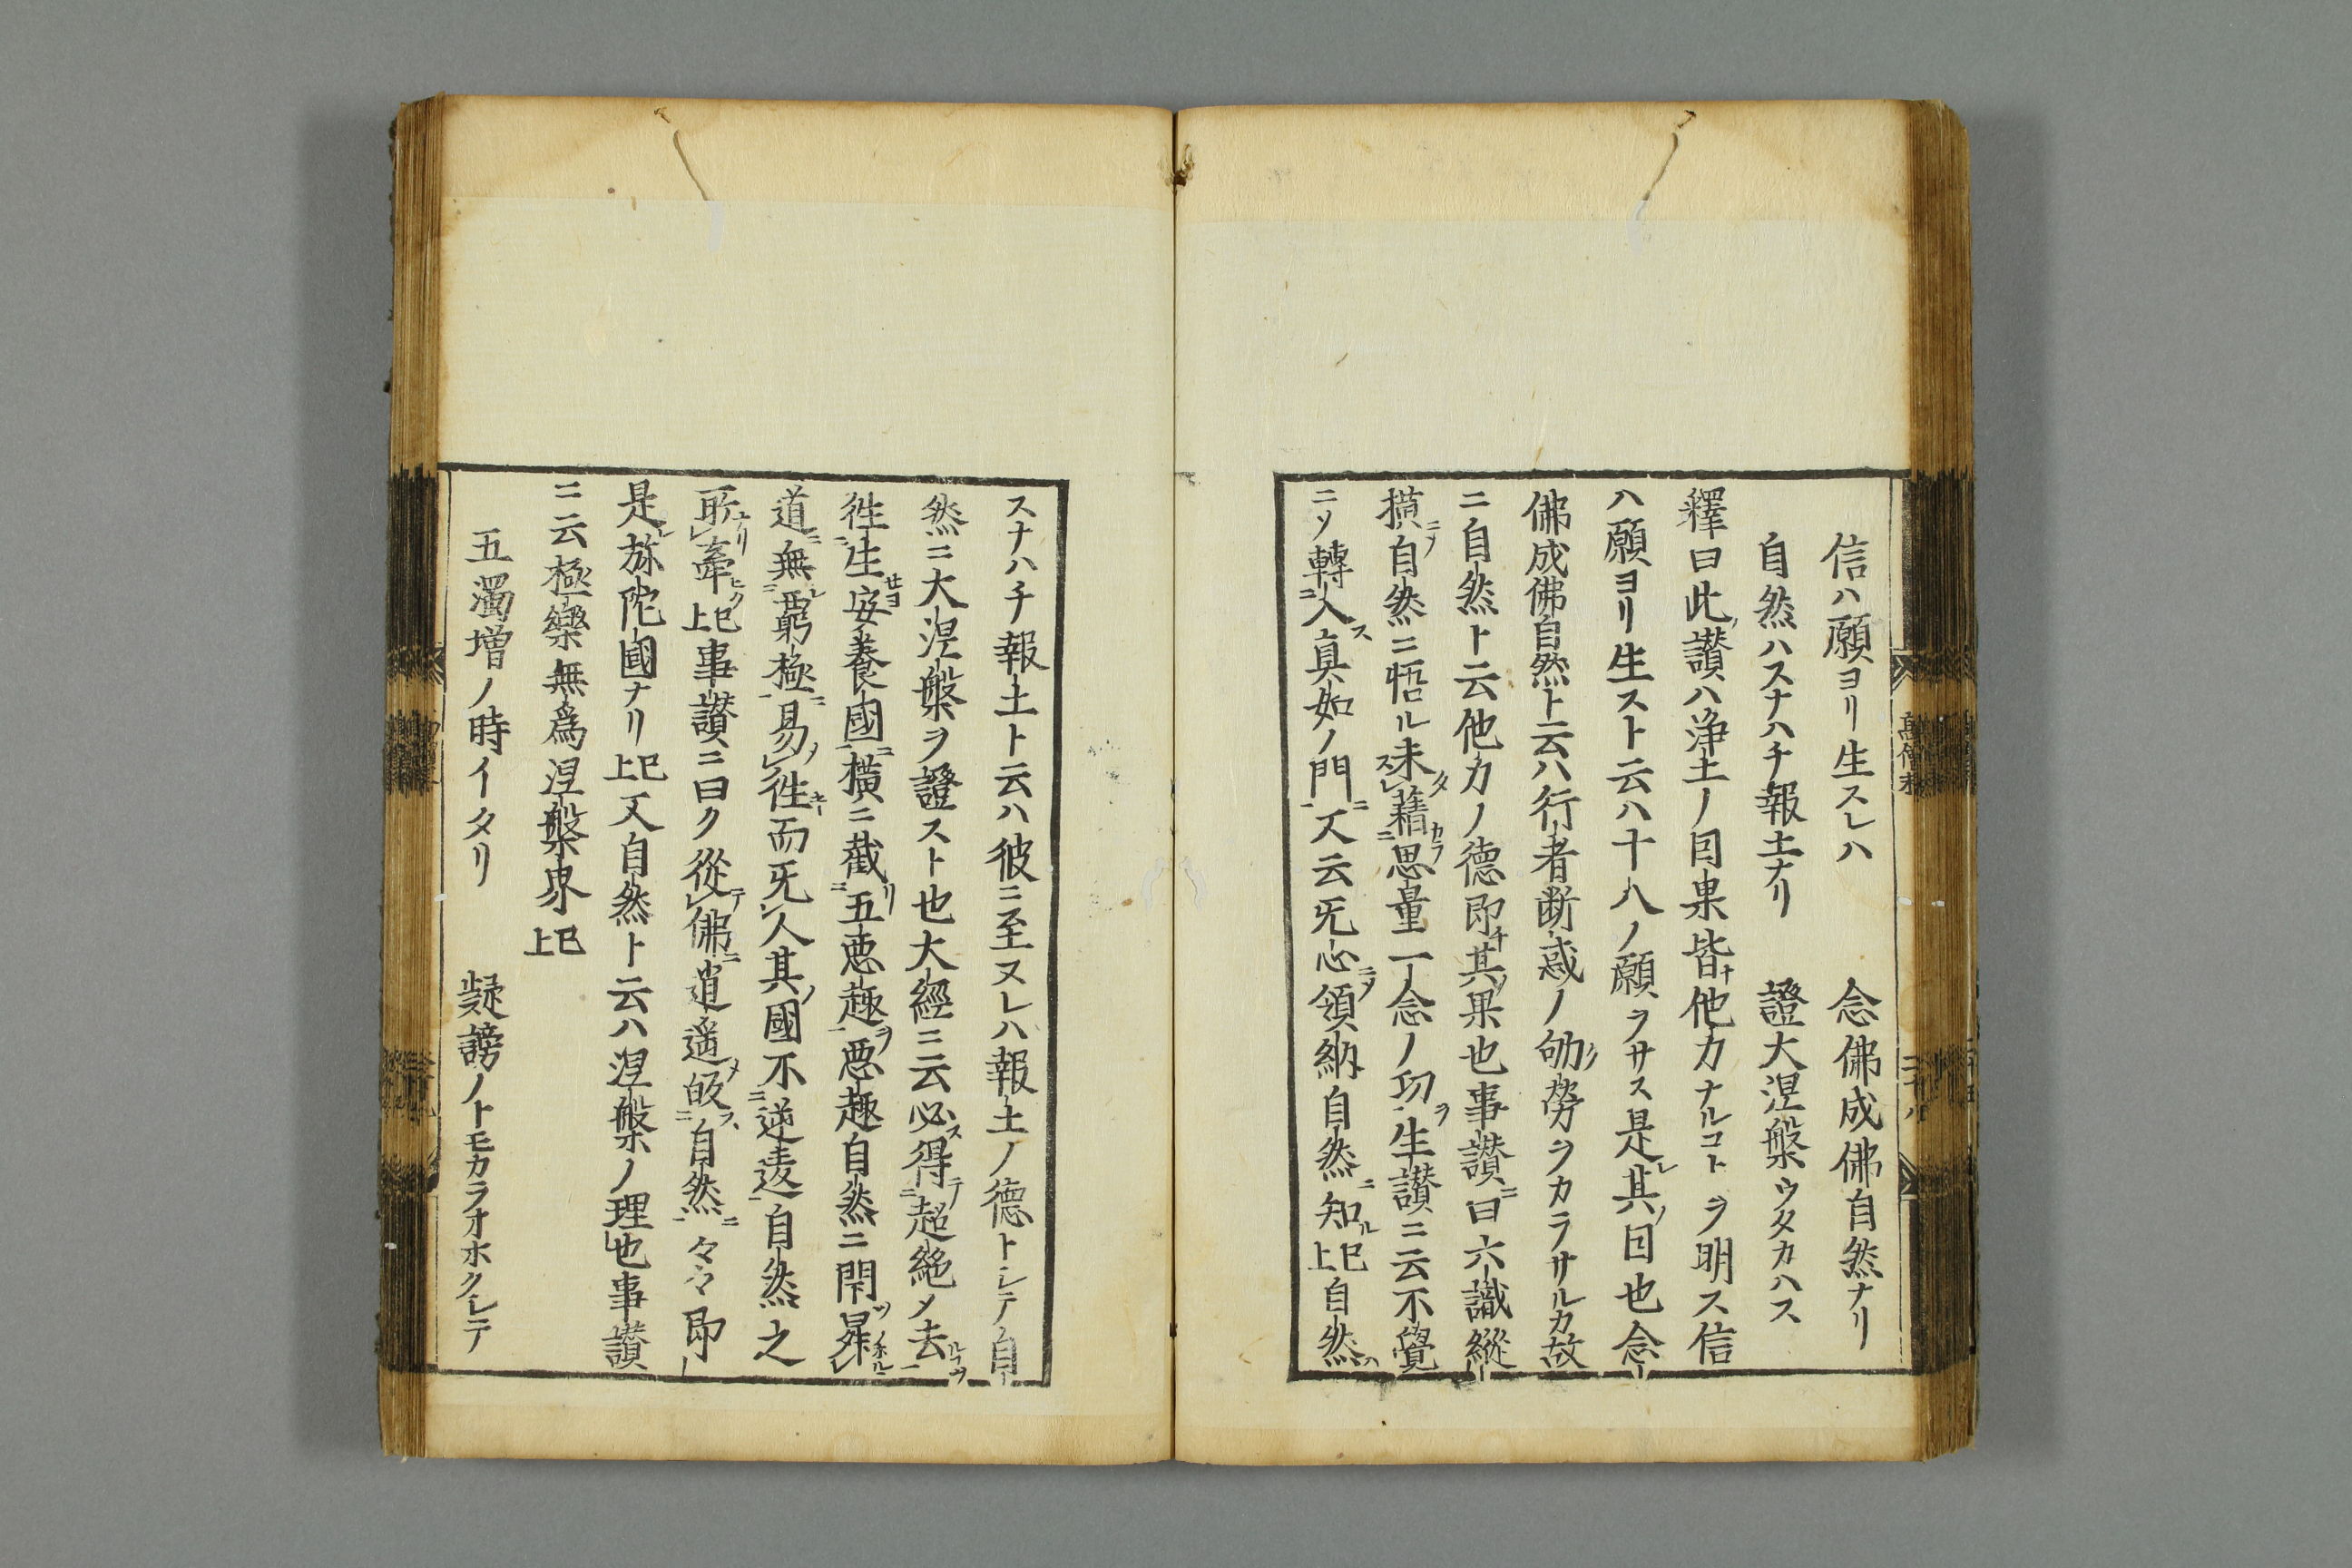 信ハ願ヨリ生スレハ 念佛成佛自然ナリ
自然ハスナハチ報土ナリ 證大涅槃ウタカハス
釋曰此讃ハ浄土ノ因果皆他力ナルコトヲ明ス信
ハ願ヨリ生スト云ハ十八ノ願ヲサス是其因也念
佛成佛自然ト云ハ行者断惑ノ劬勞ヲカラサルカ故
ニ自然ト云他力ノ德即其果也事讃曰六識縱
横自然ニ悟ル未藉思量一念ノ功生讃ニ云不覺
ニソ轉入真如ノ門又云旡心領納自然知已上自然
スナハチ報土ト云ハ彼ニ至ヌレハ報土ノ德トシテ自
然ニ大涅槃ヲ證スト也大經ニ云必得超絶メ去
徃生安養國横ニ截五惡趣惡趣自然ニ閇昇
道無窮極易徃而旡人其國不逆違自然之
所牽已上事讃ニ曰ク從佛逍遥皈自然々々即
是弥陀國ナリ已上又自然ト云ハ涅槃ノ理也事讃
ニ云極樂無爲涅槃界已上
五濁増ノ時イタリ 疑謗ノトモカラオホクレテ